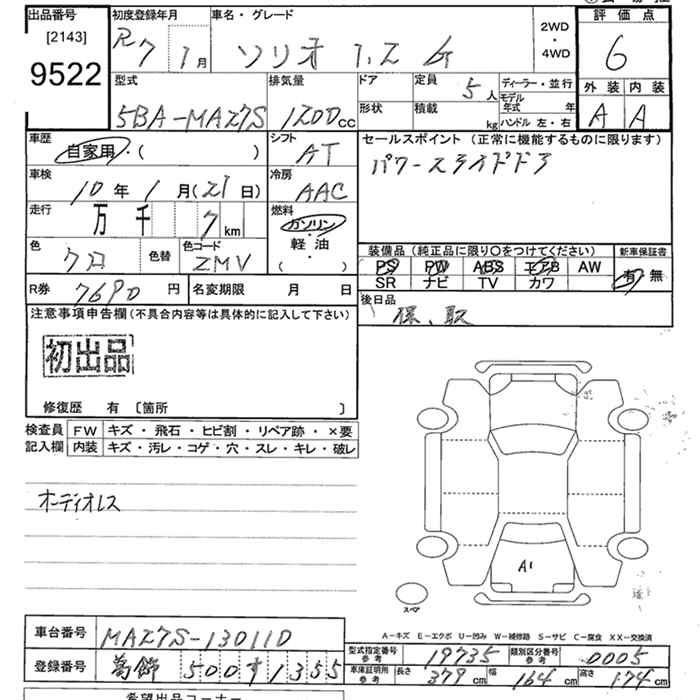 出品番号 初度登録年月 車名・グレード 2WD ・ 4WD 評価点
[2143] R7 1月 ソリオ 1.2 G 6
9522
型式 排気量 ドア 定員 5人 ディーラー・並行 外装 内装
5BA-MAZ7S 1200cc 形状 積載 kg モデル年式 年 A A
ハンドル 左・右
車歴 シフト セールスポイント (正常に機能するものに限ります)
自家用・( ) AT パワースライドドア
車検 冷房
10年1月(21日) AAC
走行 燃料
万 千 7km ガソリン・軽・油
色 色替 色コード ( ) 装備品(純正品に限り○をつけてください) 新車保証書
クロ ZMV PS PW ABS エアB AW 有・無
SR ナビ TV カワ
R券 7690円 名変期限 月 日 後日品
保、取
注意事項申告欄(不具合内容等は具体的に記入して下さい)
初出品
修復歴 有 〔箇所 〕
検査員 FW キズ・飛石・ヒビ割・リペア跡・×要
記入欄 内装 キズ・汚レ・コゲ・穴・スレ・キレ・破レ
オーディオレス
A1
スペア
A-キズ E-エクボ U-凹み W-補修跡 S-サビ C-腐食 XX-交換済
車台番号 MAZ7S-13011D
型式指定番号 参考 19735 類別区分番号 参考 0005
登録番号 葛飾 500す1355
車庫証明用 参考 長さ 379cm 幅 164cm 高さ 174cm
希望出品コーナー